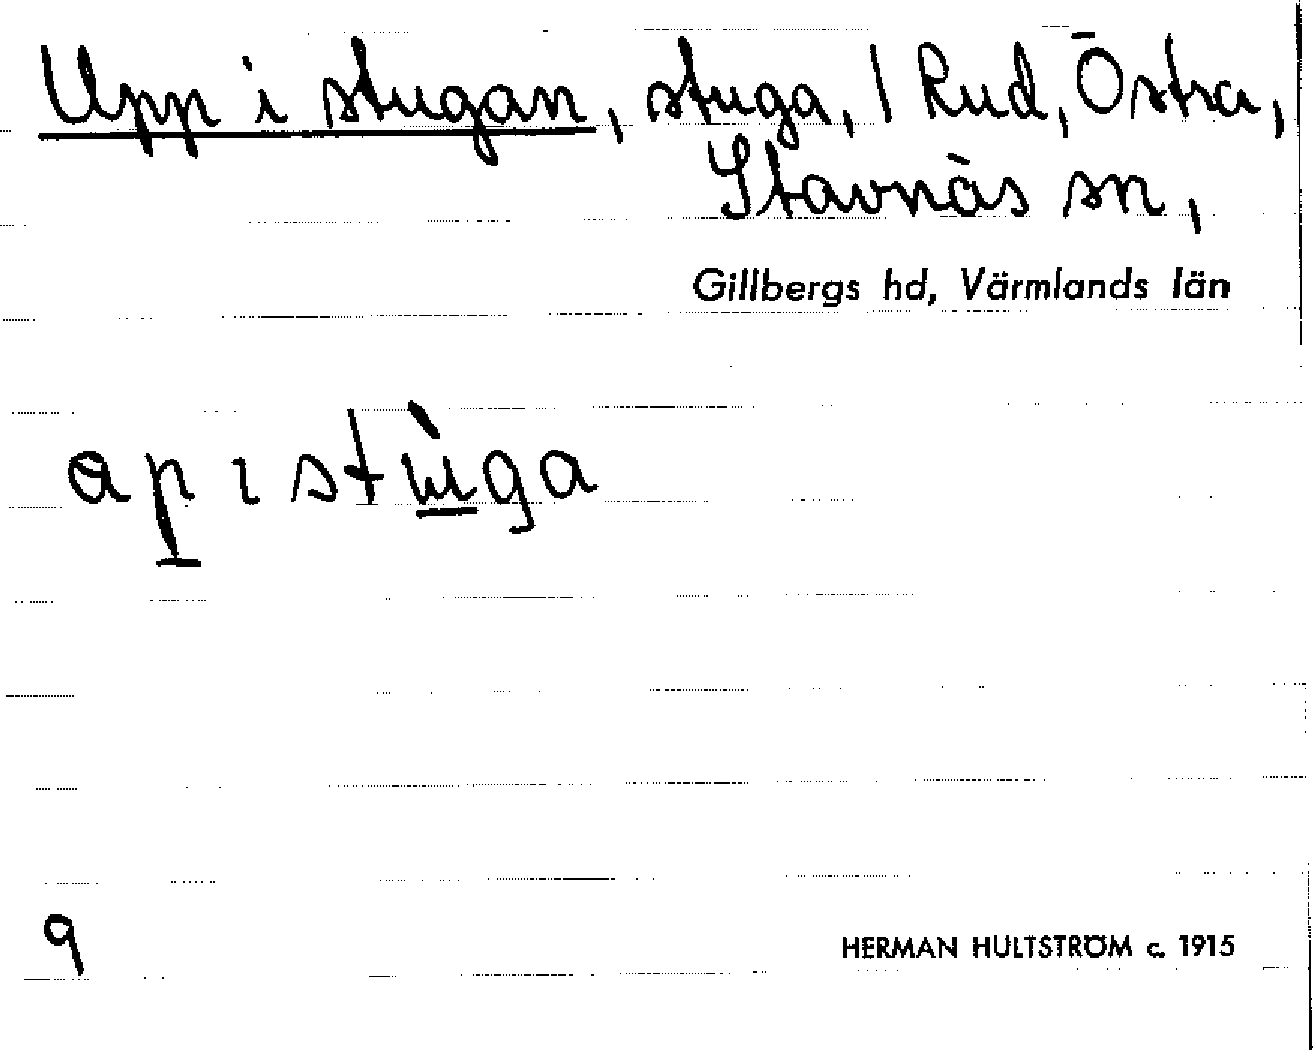 Upp i stugan, stuga, / Rud, Östra,
Stavnäs sn,
Gillbergs hd, Värmlands län
ap ı stùga
9
HERMAN HULTSTRÖM c. 1915